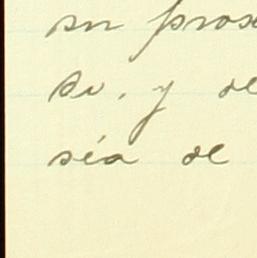 su pros
su, y de
sía de